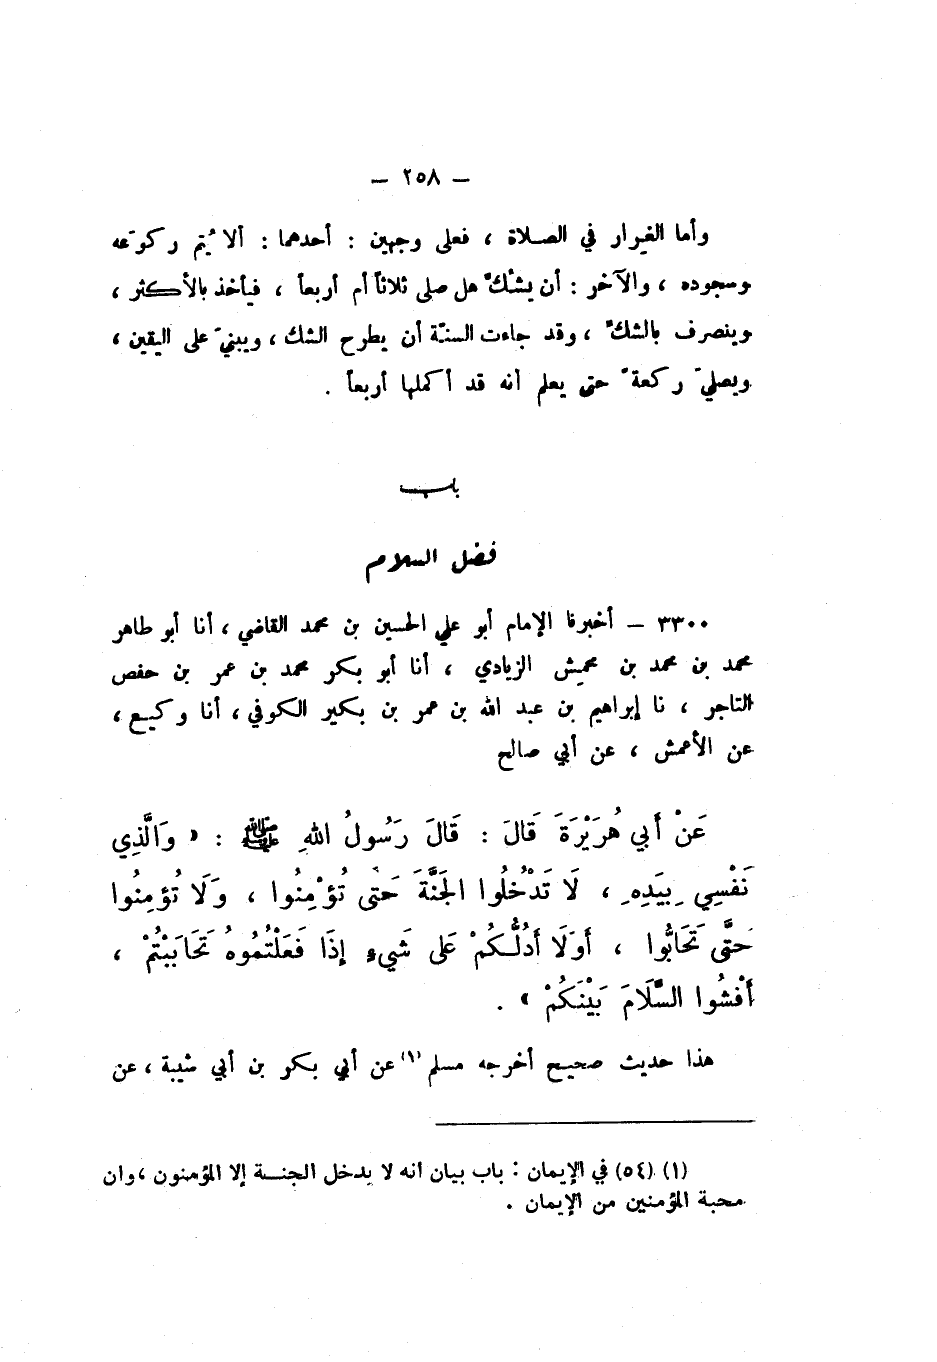 — ٢٥٨ —
وأما الغيرار في الصلاة ، فعلى وجهين : أحدهما : ألا يُتم ركوعَه
وسجوده ، والآخر : أن يشُكَّ هل صلى ثلاثاً أم أربعاً ، فيأخذ بالأكثر ،
وينصرف بالشكّ ، وقد جاءت السنّة أن يطرح الشك ، ويبنيَ على اليقين ،
ويصليَ ركعةً حتى يعلم أنه قد أكملها أربعاً .
باب
فضل السلام
٣٣٠٠ — أخبرنا الإمام أبو علي الحسين بن محمد القاضي ، أنا أبو طاهر
محمد بن محمد بن محمش الزيادي ، أنا أبو بكر محمد بن عمر بن حفص
التاجر ، نا إبراهيم بن عبد الله بن عمر بن بكير الكوفي ، أنا وكيع ،
عن الأعمش ، عن أبي صالح
عَنْ أَبي هُرَيْرَةَ قَالَ : قَالَ رَسُولُ اللهِ ﷺ : « وَالَّذِي
نَفْسِي بِيَدِهِ ، لَا تَدْخُلُوا الجَنَّةَ حَتَّى تُؤْمِنُوا ، وَلَا تُؤمِنُوا
حَتَّى تَحَابُّوا ، أَوَلَا أَدُلُّكُمْ عَلَى شَيءٍ إِذَا فَعَلْتُمُوهُ تَحَابَبْتُمْ ،
أَفْشُوا السَّلَامَ بَيْنَكُمْ » .
هذا حديث صحيح أخرجه مسلم (١) عن أبي بكر بن أبي شيبة ، عن
(١) (٥٤) في الإيمان : باب بيان أنه لا يدخل الجنة إلا المؤمنون ، وان
محبة المؤمنين من الإيمان .